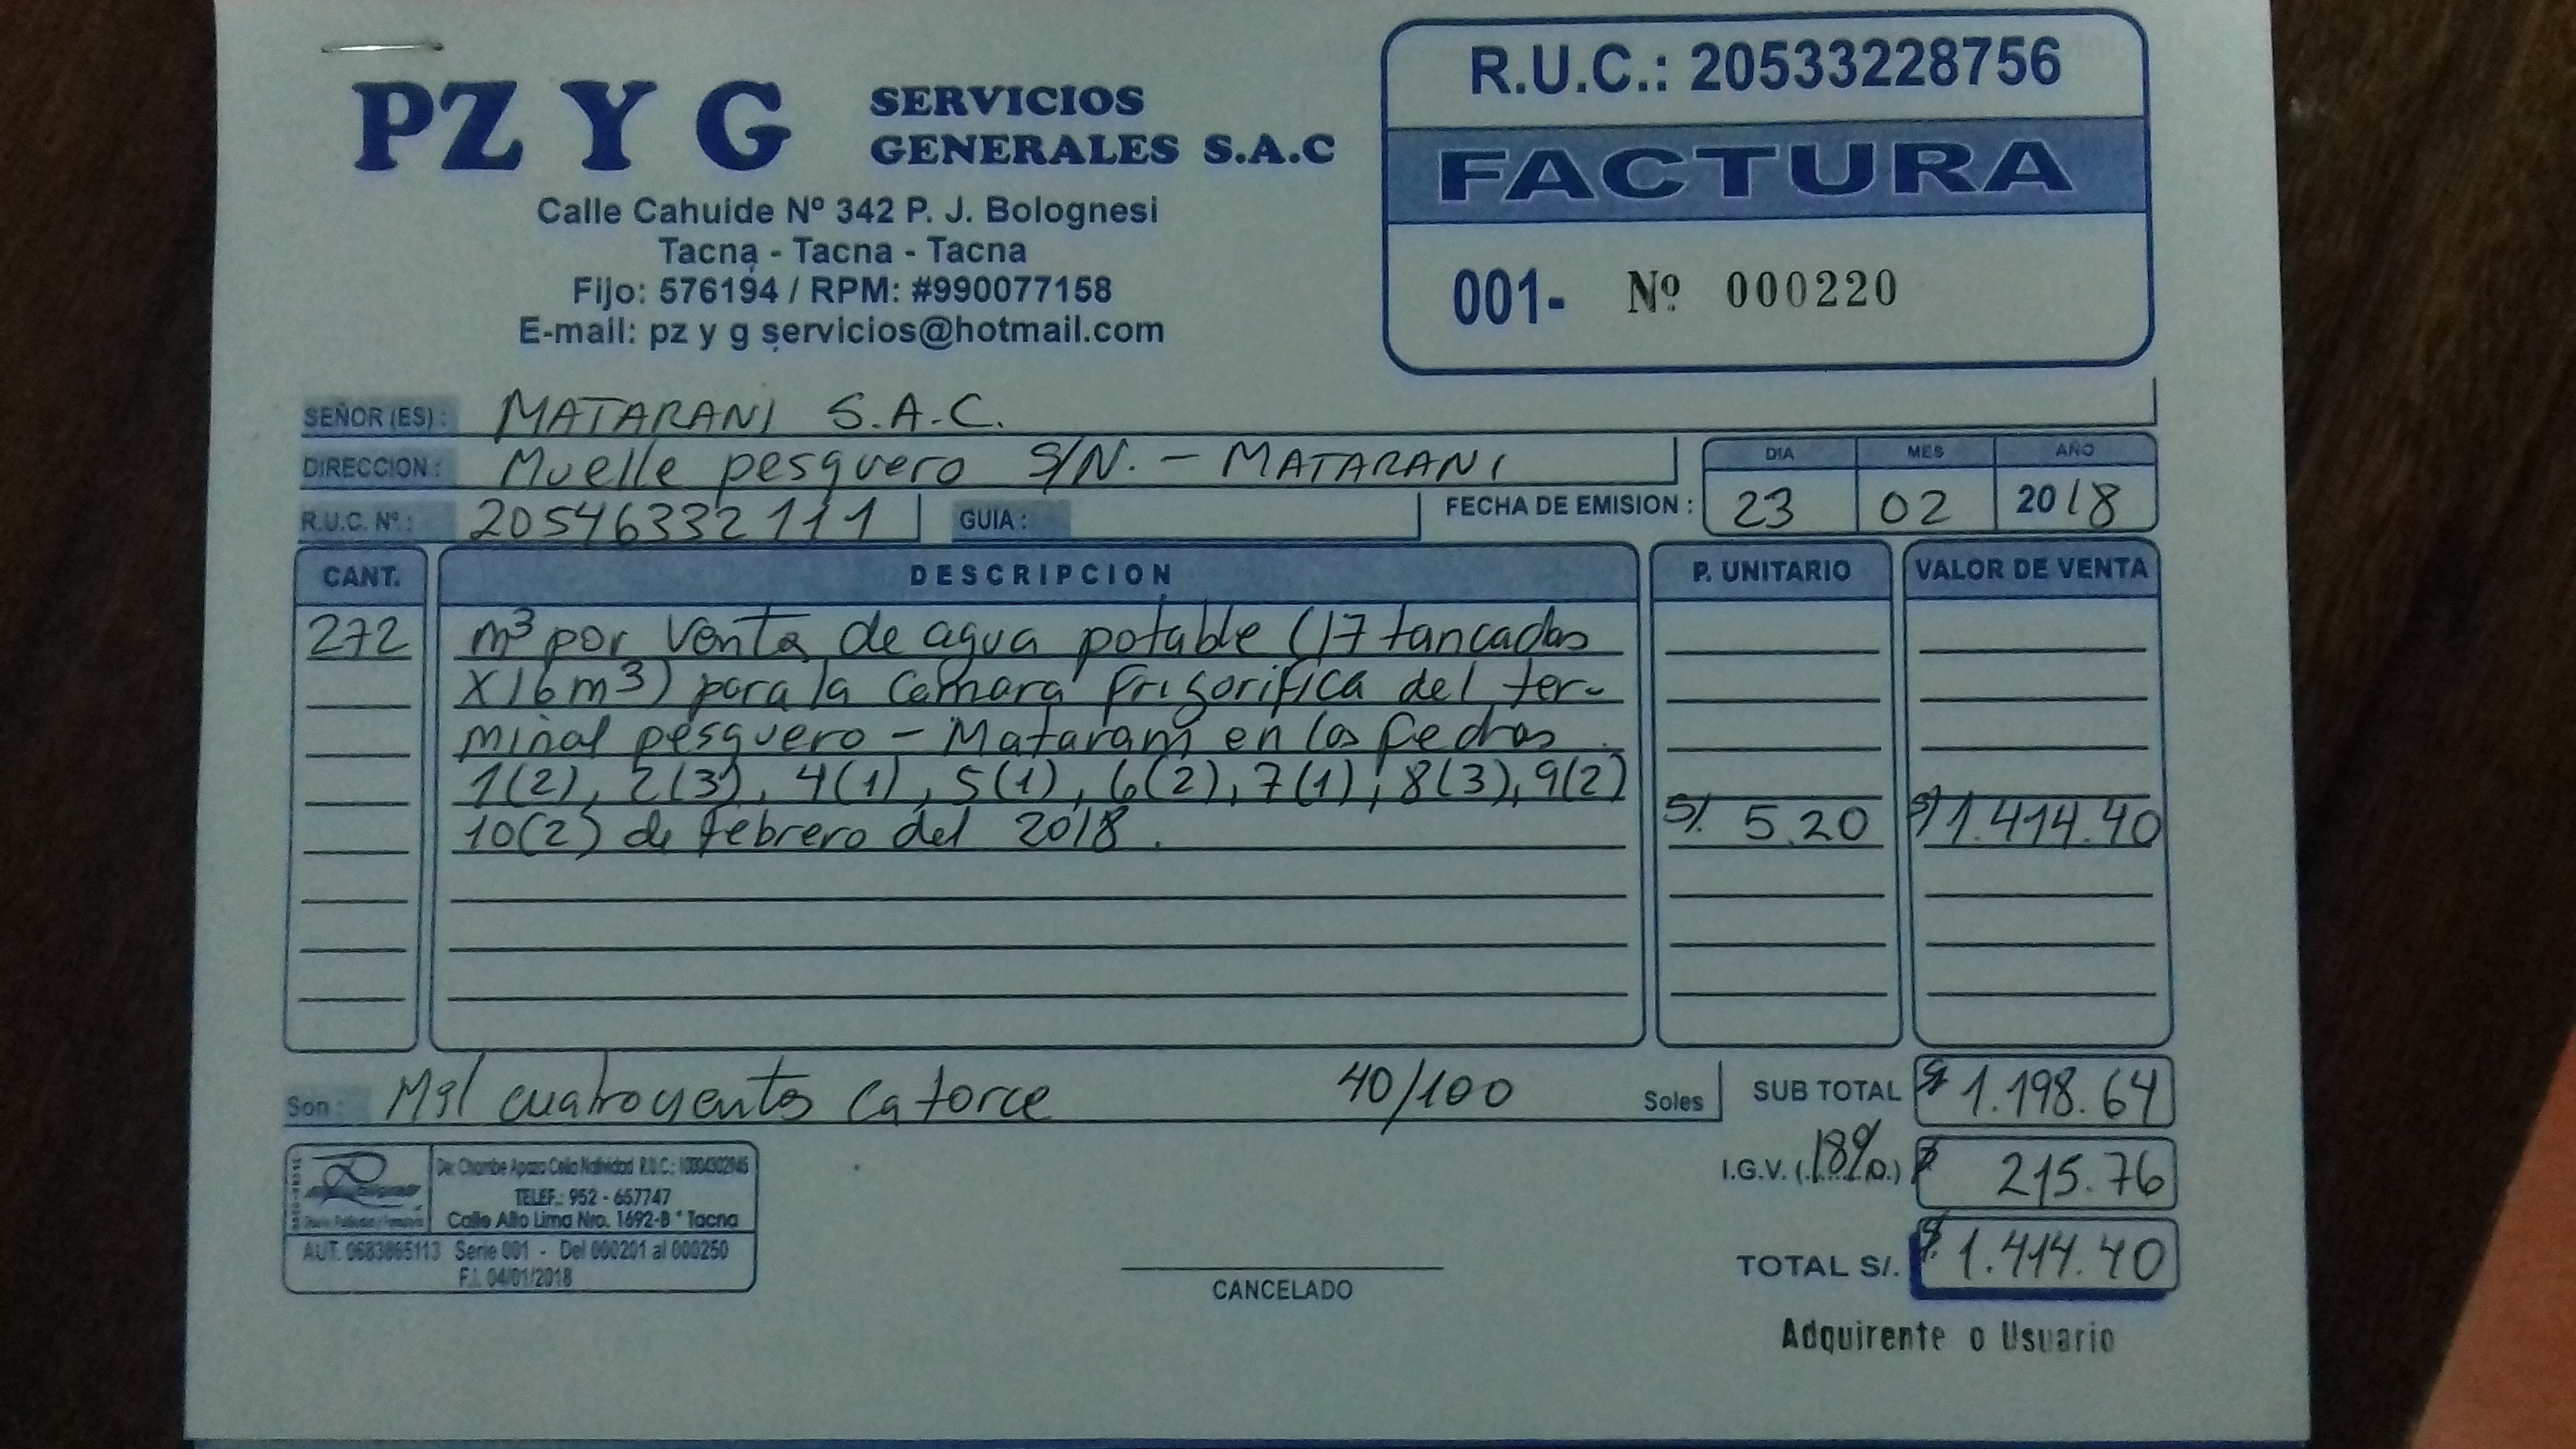 PZ Y G SERVICIOS GENERALES S.A.C
Calle Cahuide Nº 342 P. J. Bolognesi
Tacna - Tacna - Tacna
Fijo: 576194 / RPM: #990077158
E-mail: pz y g servicios@hotmail.com
R.U.C.: 20533228756
FACTURA
001- Nº 000220
SEÑOR (ES) : MATARANI S.A.C.
DIRECCION : Muelle pesquero S/N. - MATARANI
R.U.C. Nº : 20546332111 GUIA :
FECHA DE EMISION : DIA MES AÑO
23 02 2018
CANT. DESCRIPCION P. UNITARIO VALOR DE VENTA
272 m³ por Venta de agua potable (17 tancadas
X16m³) para la Camara frigorifica del ter-
minal pesquero - Matarani en las fechas
1(2), 2(3), 4(1), 5(1), 6(2), 7(1), 8(3), 9(2)
10(2) de febrero del 2018. S/. 5.20 S/ 1.414.40
Son : Mil cuatrocientos catorce 40/100 Soles
SUB TOTAL S/ 1.198.64
I.G.V. (18%) S/ 215.76
TOTAL S/. S/. 1.414.40
De: Chambe Apaza Celia Natividad R.U.C.:
TELEF.: 952 - 657747
Calle Alto Lima Nro. 1692-B * Tacna
AUT. 0683865113 Serie 001 - Del 000201 al 000250
F.I. 04/01/2018
CANCELADO
Adquirente o Usuario